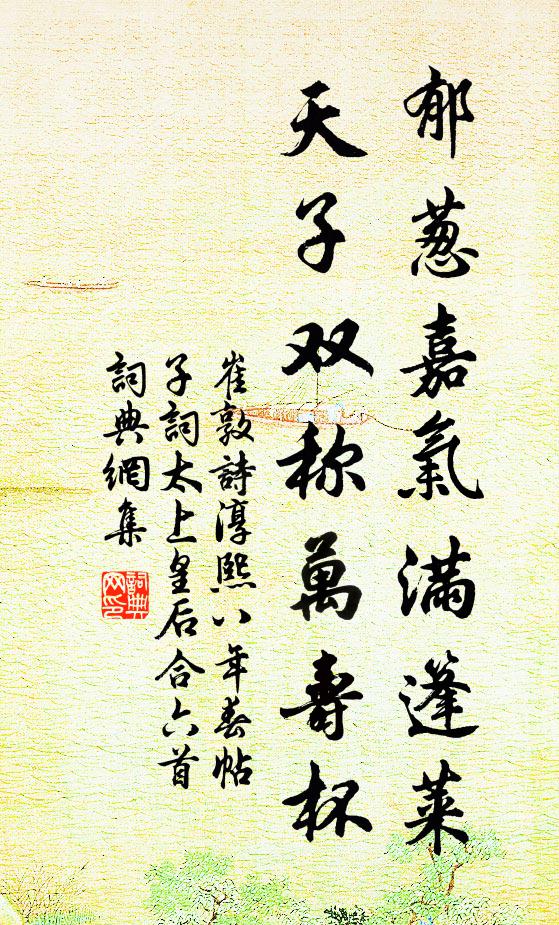 郁葱嘉氣滿蓬萊
天子双称萬壽杯
崔敦詩淳熙八年春帖
子詞太上皇后合六首
詞典網集
詞典
网印